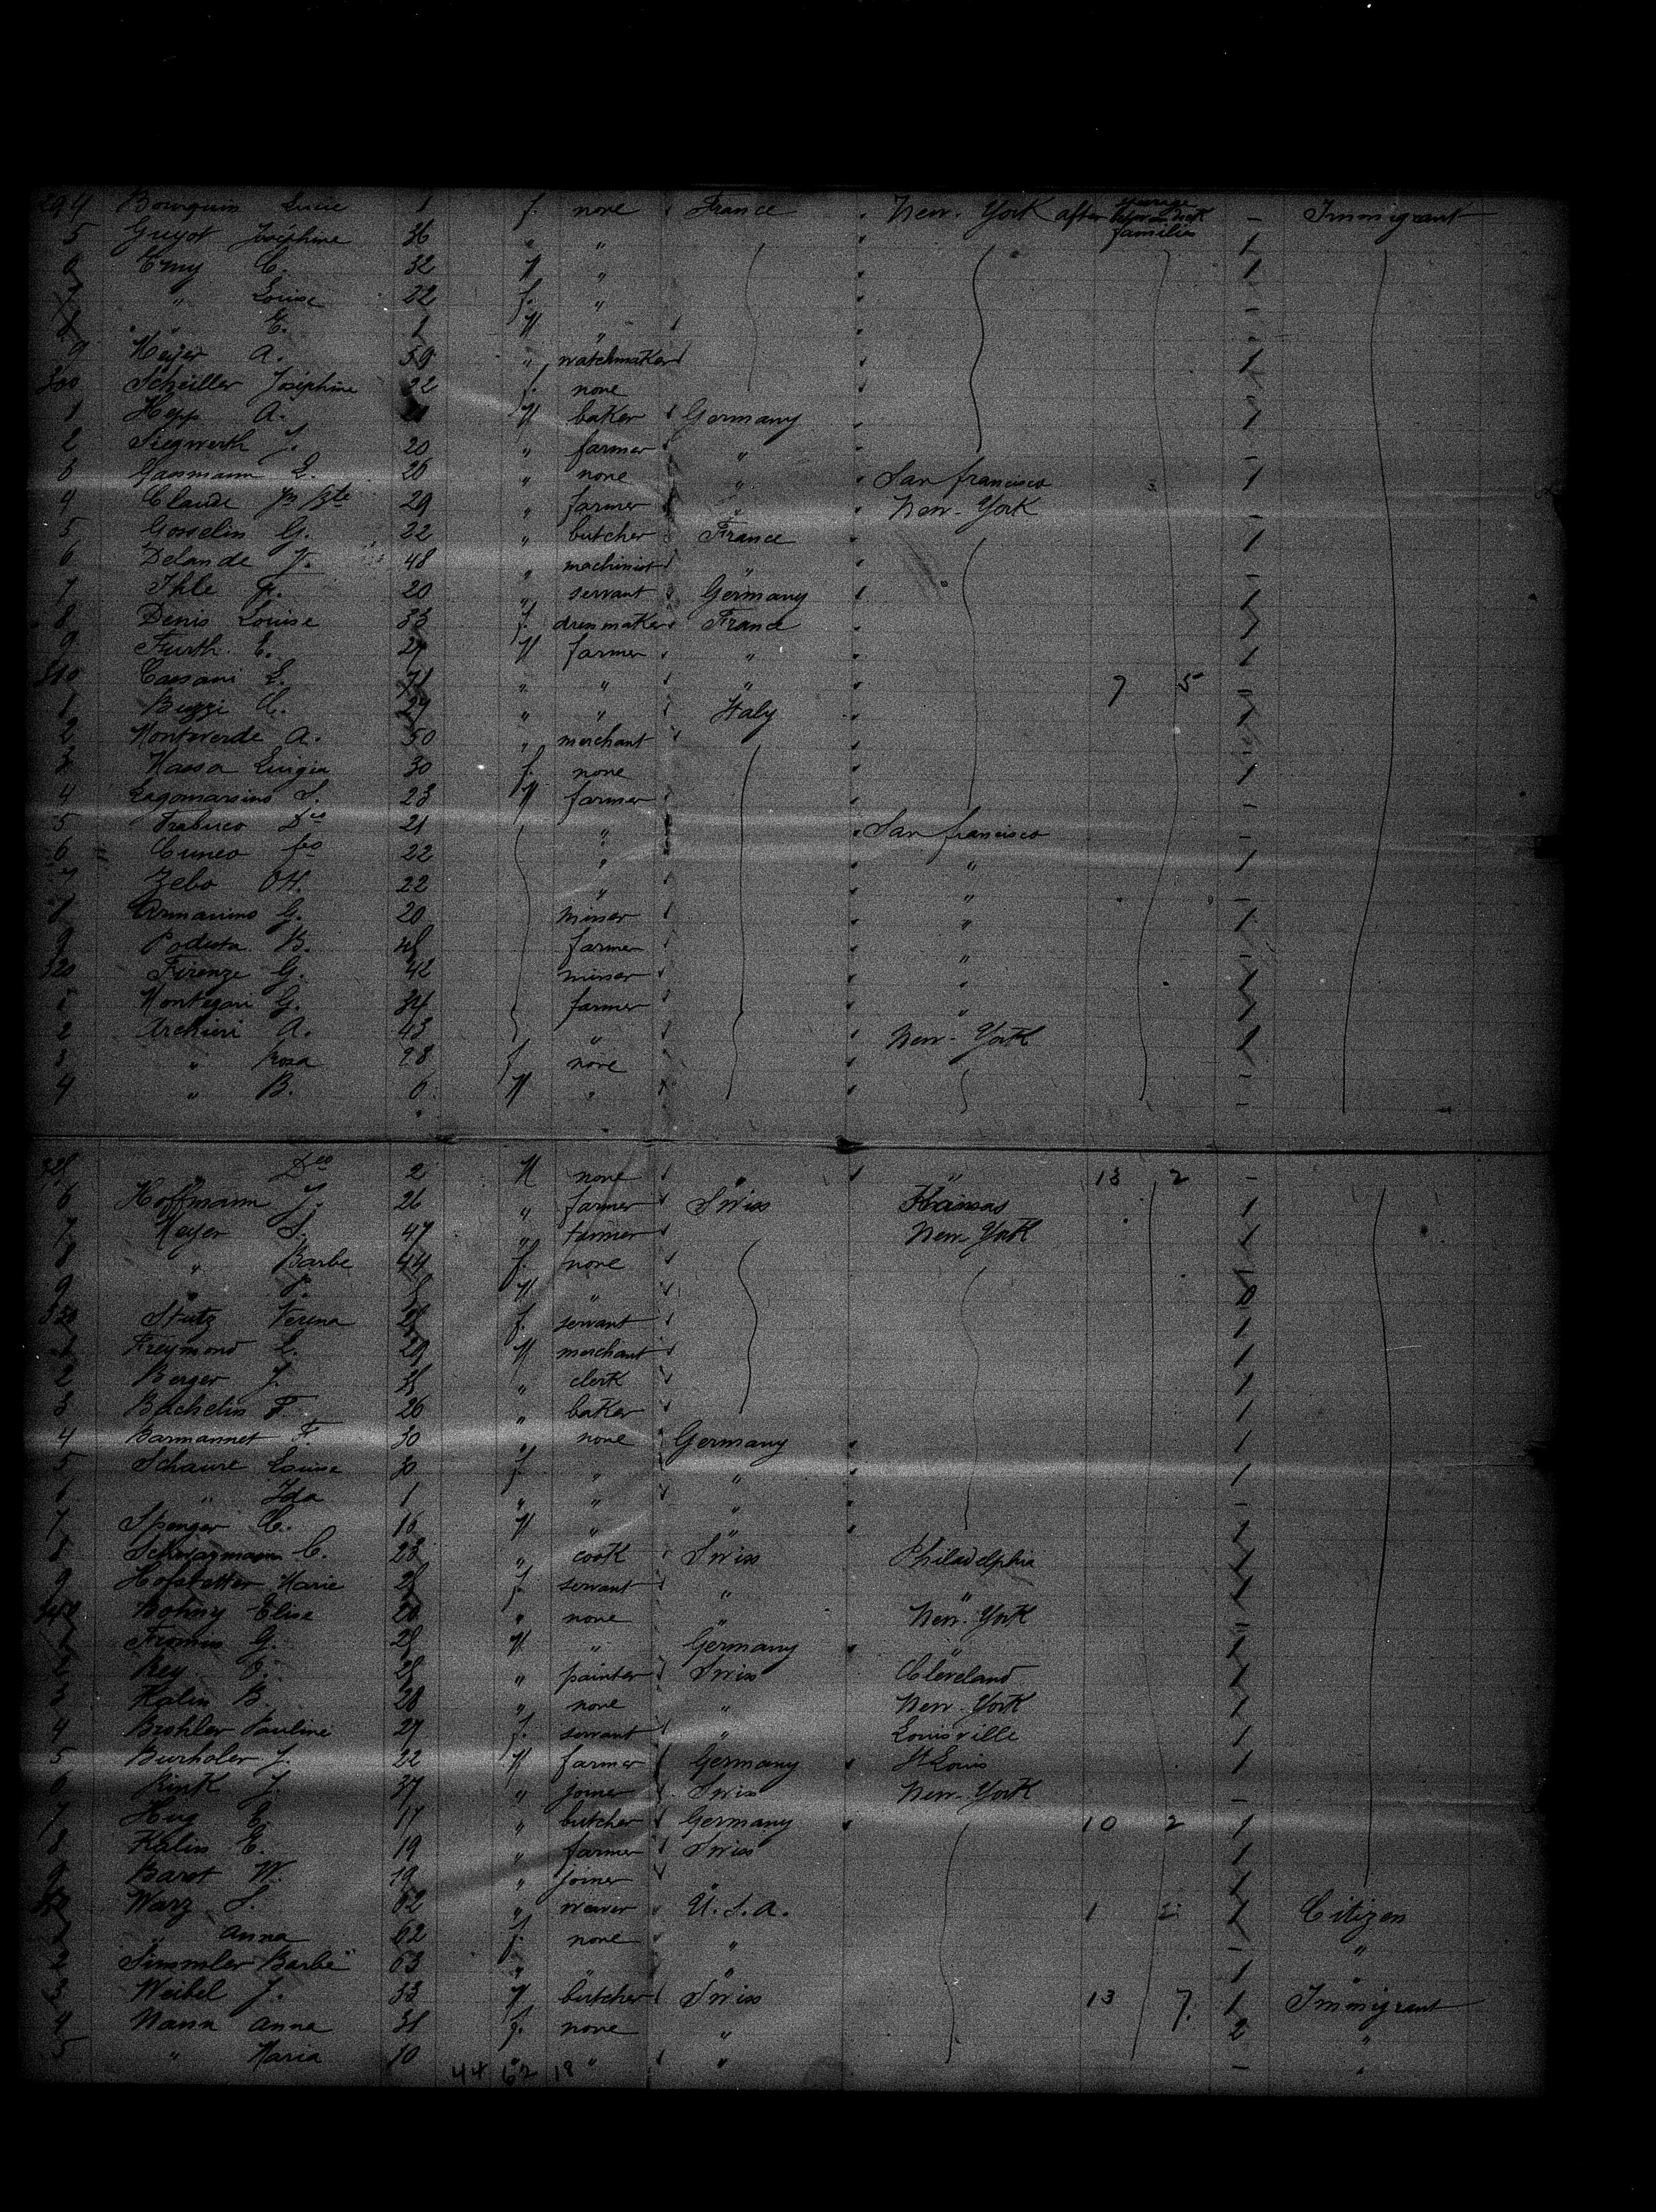 294 Bourquin Lucie 1 f. none France New-York after steerage families – Immigrant
5 Guyot Josephine 36 " " 1
6 Emy C. 32 M " 1
7 " Louise 22 f. " –
8 " E. 1 M " –
9 Meyer A. 59 " watchmaker 1
300 Scheiller Joséphine 22 f. none –
1 Hepp A. M baker Germany 1
2 Siegwerth J. 20 " farmer " –
3 Gassmann E. 26 " none " San francisco 1
4 Claude Jn Bte 29 " farmer " New-York –
5 Gosselin G. 22 " butcher France 1
6 Delande J. 48 " machinist " –
7 Ihle Fr. 20 " servant Germany 1
8 Denis Louise 33 f. dressmaker France 1
9 Furth E. 27 M farmer " 1
310 Cassani L. " " " 7 5 –
1 Buzzi C. 27 " " Italy 1
2 Monteverde A. 50 " merchant –
3 Massa Luigia 30 f. none 1
4 Lagomarsino S. 23 M farmer –
5 Trabuco Dco 21 " San francisco –
6 Cuneo fco 22 " " 1
7 Zebo 22 " " –
8 Armanino G. 20 miner " 1
9 Podesta B. farmer " –
320 Firenze G. 42 miner " 1
1 G. 34 farmer " 1
2 Archieri A. 43 " New-York 1
3 " Rosa 28 f. none –
4 " B. 6 M " –
325 " Dco 2 M none " " 13 2 –
6 Hoffmann J. 26 " farmer Swiss Kansas 1
7 Meyer S. 47 " farmer New-York 1
8 " Barbe 44 f. none –
9 " M "
330 Stutz Verena f. servant 1
1 Freymond L. 29 M merchant 1
2 Berger J. " clerk 1
3 Bachelin F. 26 " baker 1
4 Barmannet F. 30 " none Germany 1
5 Schaure Louise 30 f. " " 1
6 " Ida 1 " " " –
7 Spenger C. 16 M " " 1
8 C. 23 " cook Swiss Philadelphia 1
9 Hofstetter Marie f. servant " " 1
340 Bohny Elise 20 " none " New-York –
1 Fromin G. M " Germany " 1
2 Rey " painter Swiss Cleveland 1
3 Kalin B. 28 " none " New-York 1
4 Brohler Pauline 27 f. servant " Louisville 1
5 Burholer J. 22 M farmer Germany St Louis 1
6 Rink J. 37 " joiner Swiss New-York –
7 Hug E. 17 " butcher Germany 10 2 1
8 Kalin E. 19 " farmer Swiss 1
9 Barot W. 19 " joiner " 1
350 Warz S. 62 " weaver U.S.A. 1 1 Citizen
1 " Anna 62 f. none " – "
2 Simmler Barbe 63 " " " 1 "
3 Weibel J. 33 M butcher Swiss 13 7. 1 Immigrant
4 Nann Anna 31 f. none " 2 "
5 " Maria 10 " " " – "
44 62 18